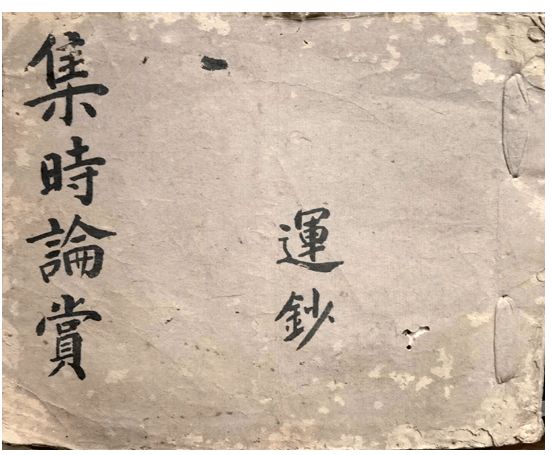 運鈔
集時論賞